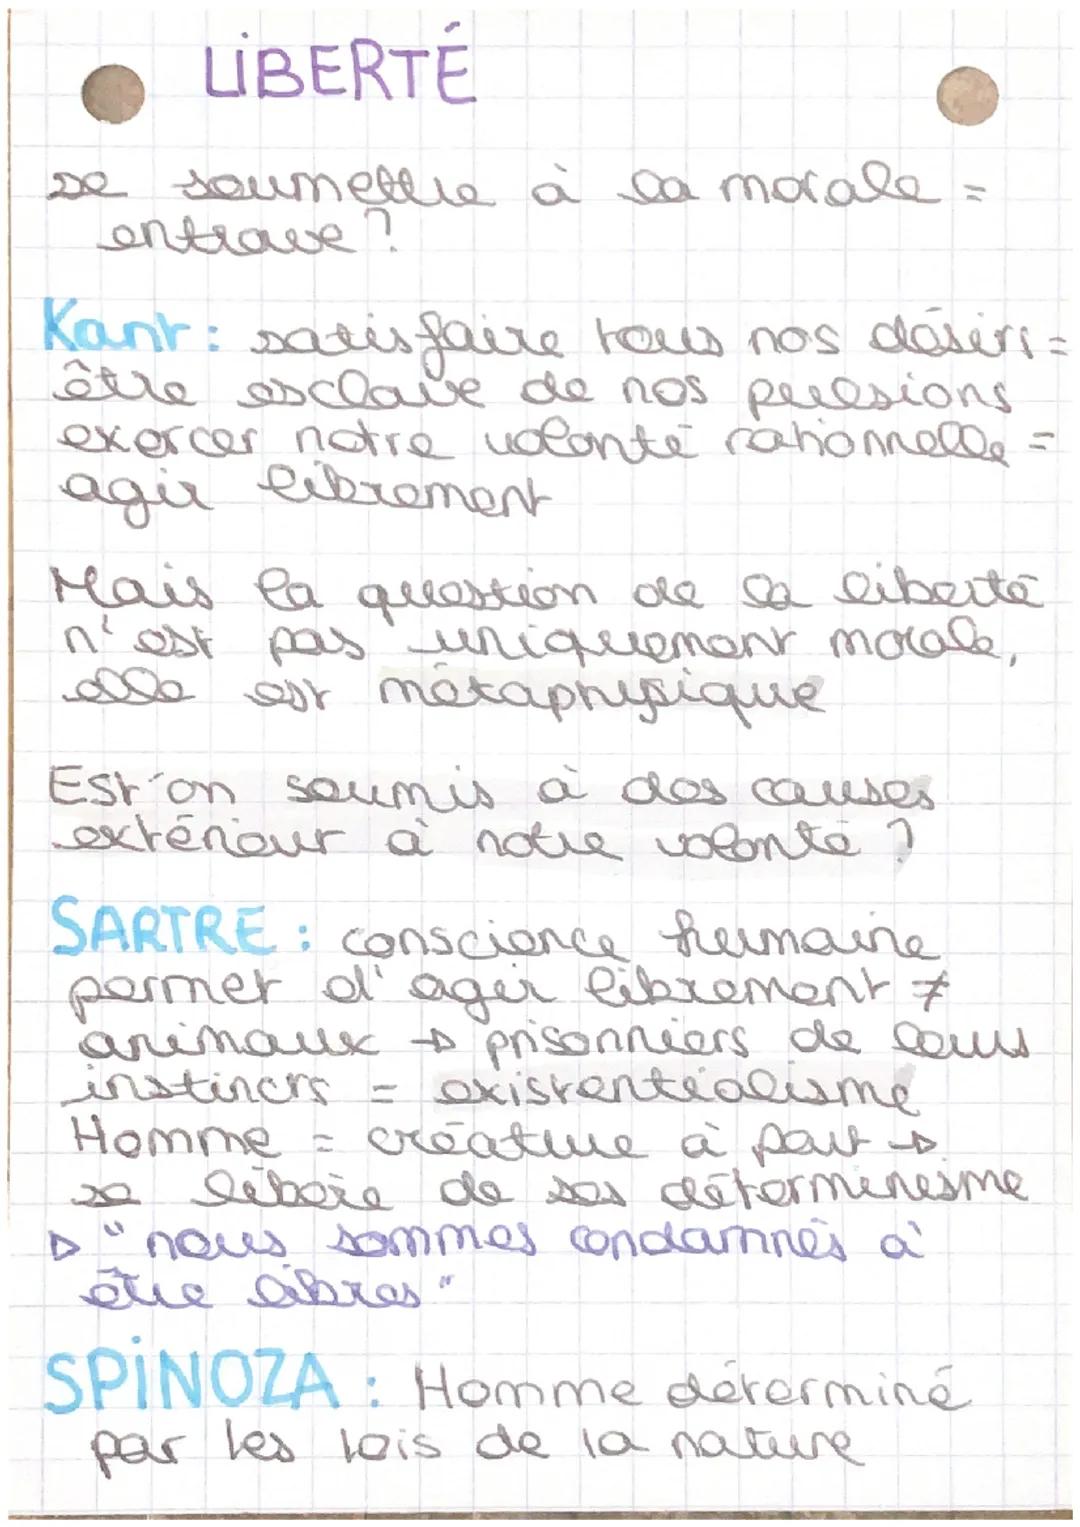 LIBERTÉ
se soumettre à la morale =
entrave ?
Kant : satisfaire tous nos désirs =
être esclave de nos pulsions
exercer notre volonté rationnelle =
agir librement
Mais la question de la liberté
n'est pas uniquement morale,
elle est métaphysique
Est-on soumis à des causes
extérieur à notre volonté ?
SARTRE : conscience humaine
permet d'agir librement ≠
animaux → prisonniers de leurs
instincts = existentialisme
Homme = créature à part →
se libère de ses déterminisme
▷ "nous sommes condamnés à
être libres"
SPINOZA : Homme déterminé
par les lois de la nature